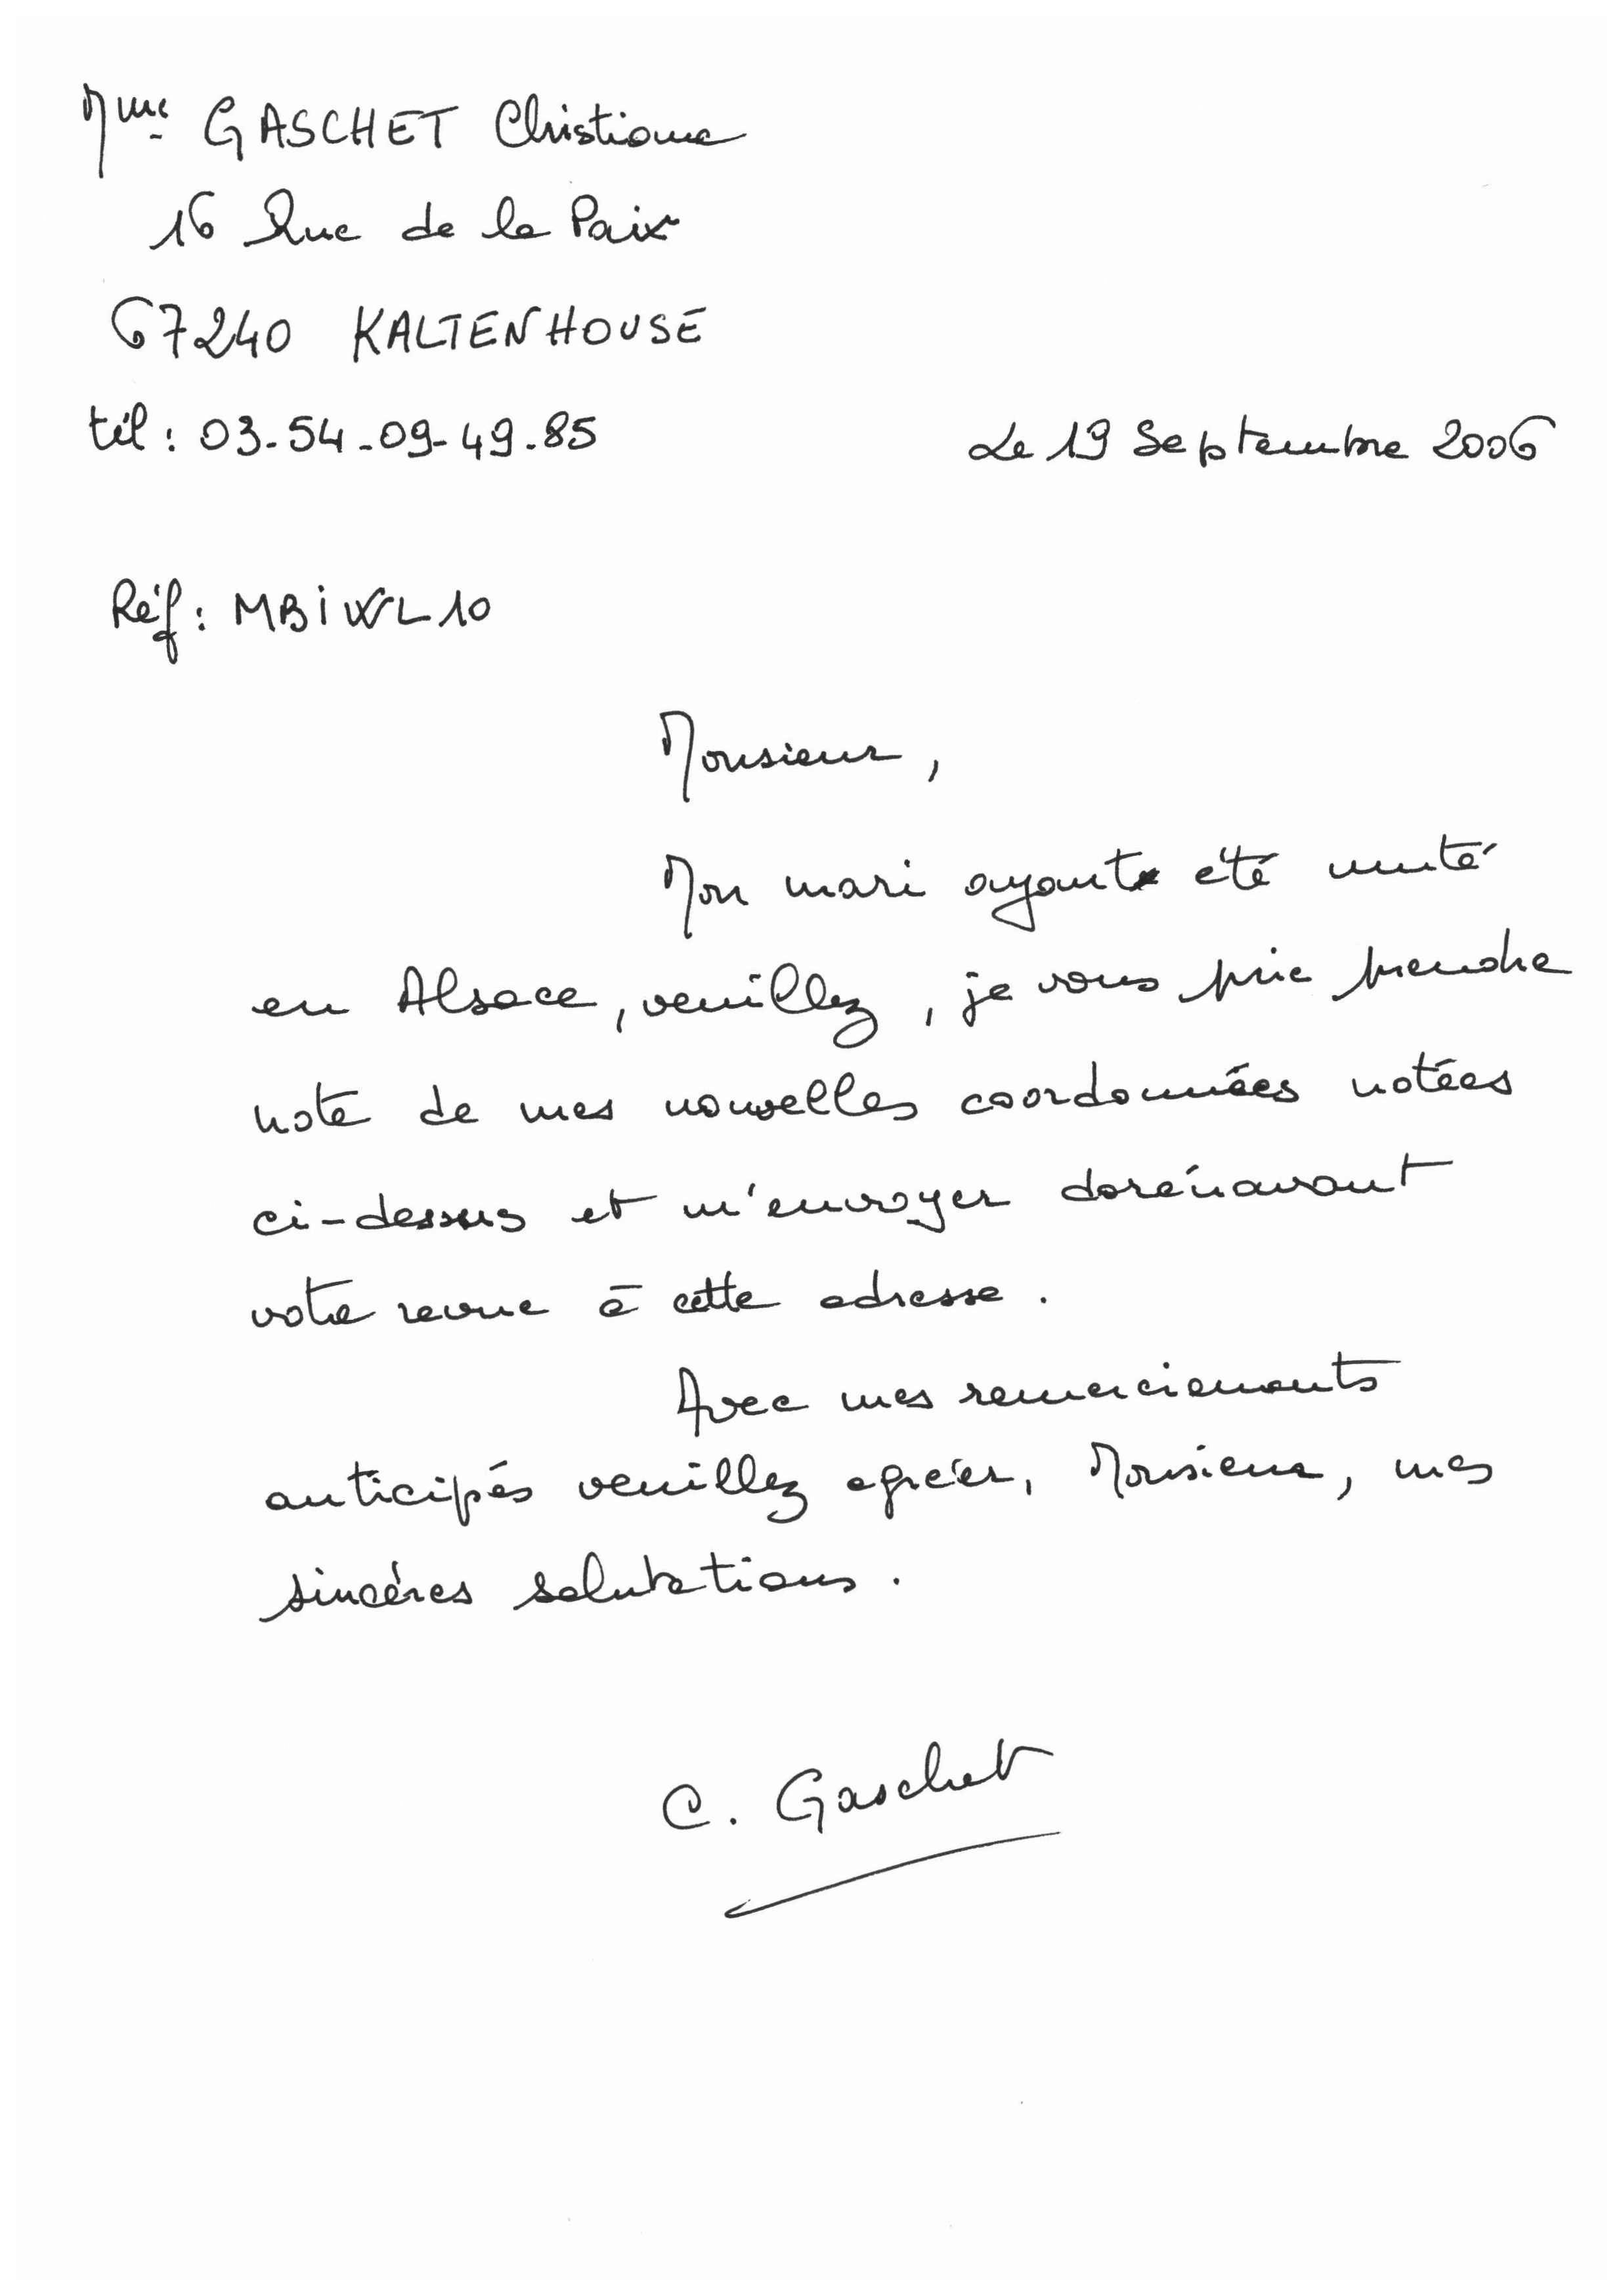 Mme GASCHET Christiane
16 Rue de la Paix
67240 KALTENHOUSE
tél : 03-54-09-49-85
Le 19 Septembre 2006
Réf : MBIWL10
Monsieur,
Mon mari ayant été muté
en Alsace, veuillez, je vous prie prendre
note de mes nouvelles coordonnées notées
ci-dessus et m'envoyer dorénavant
votre revue à cette adresse.
Avec mes remerciements
anticipés veuillez agréer, Monsieur, mes
sincéres salutations.
C. Gaschet